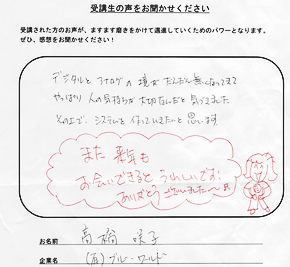 受講生の声をお聞かせください
受講された方のお声が、ますます磨きをかけて邁進していくためのパワーとなります。
ぜひ、感想をお聞かせください！
デジタルとアナログの境がだんだん無くなってきて
やっぱり人の気持ちが大切なんだと気づきました
その上で、システムを作っていきたいと思います
また来年も
お会いできるとうれしいです!
ありがとうございました〜
お名前 高橋 咲子
企業名 (有)ブルーワールド